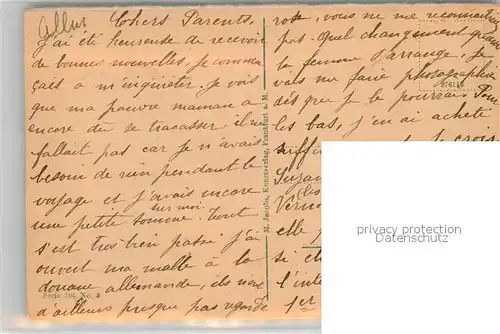 Chers Parents,
J'ai été heureuse de recevoir
de bonnes nouvelles, je commen
çais à m'inquiéter. Je vois
que ma pauvre maman a
encore dû se tracasser, il ne
fallait pas car je n'avais
besoin de rien pendant le
voyage et j'avais encore
sur moi
une petite somme. Tout
s'est très bien passé j'ai
ouvert ma malle à la
douane allemande, ils n'ont
d'ailleurs presque pas regardé
M. Jacobs, Kunstverlag, Frankfurt a. M.
Serie No.
vous ne me reconnaîtrez
pas. Quel changement quand
la femme s'arrange, je
vais me faire photographier
dès que je le pourrai. Pour
les bas, j'en ai acheté
je crois
elle
si
l'inté
1er
privacy protection